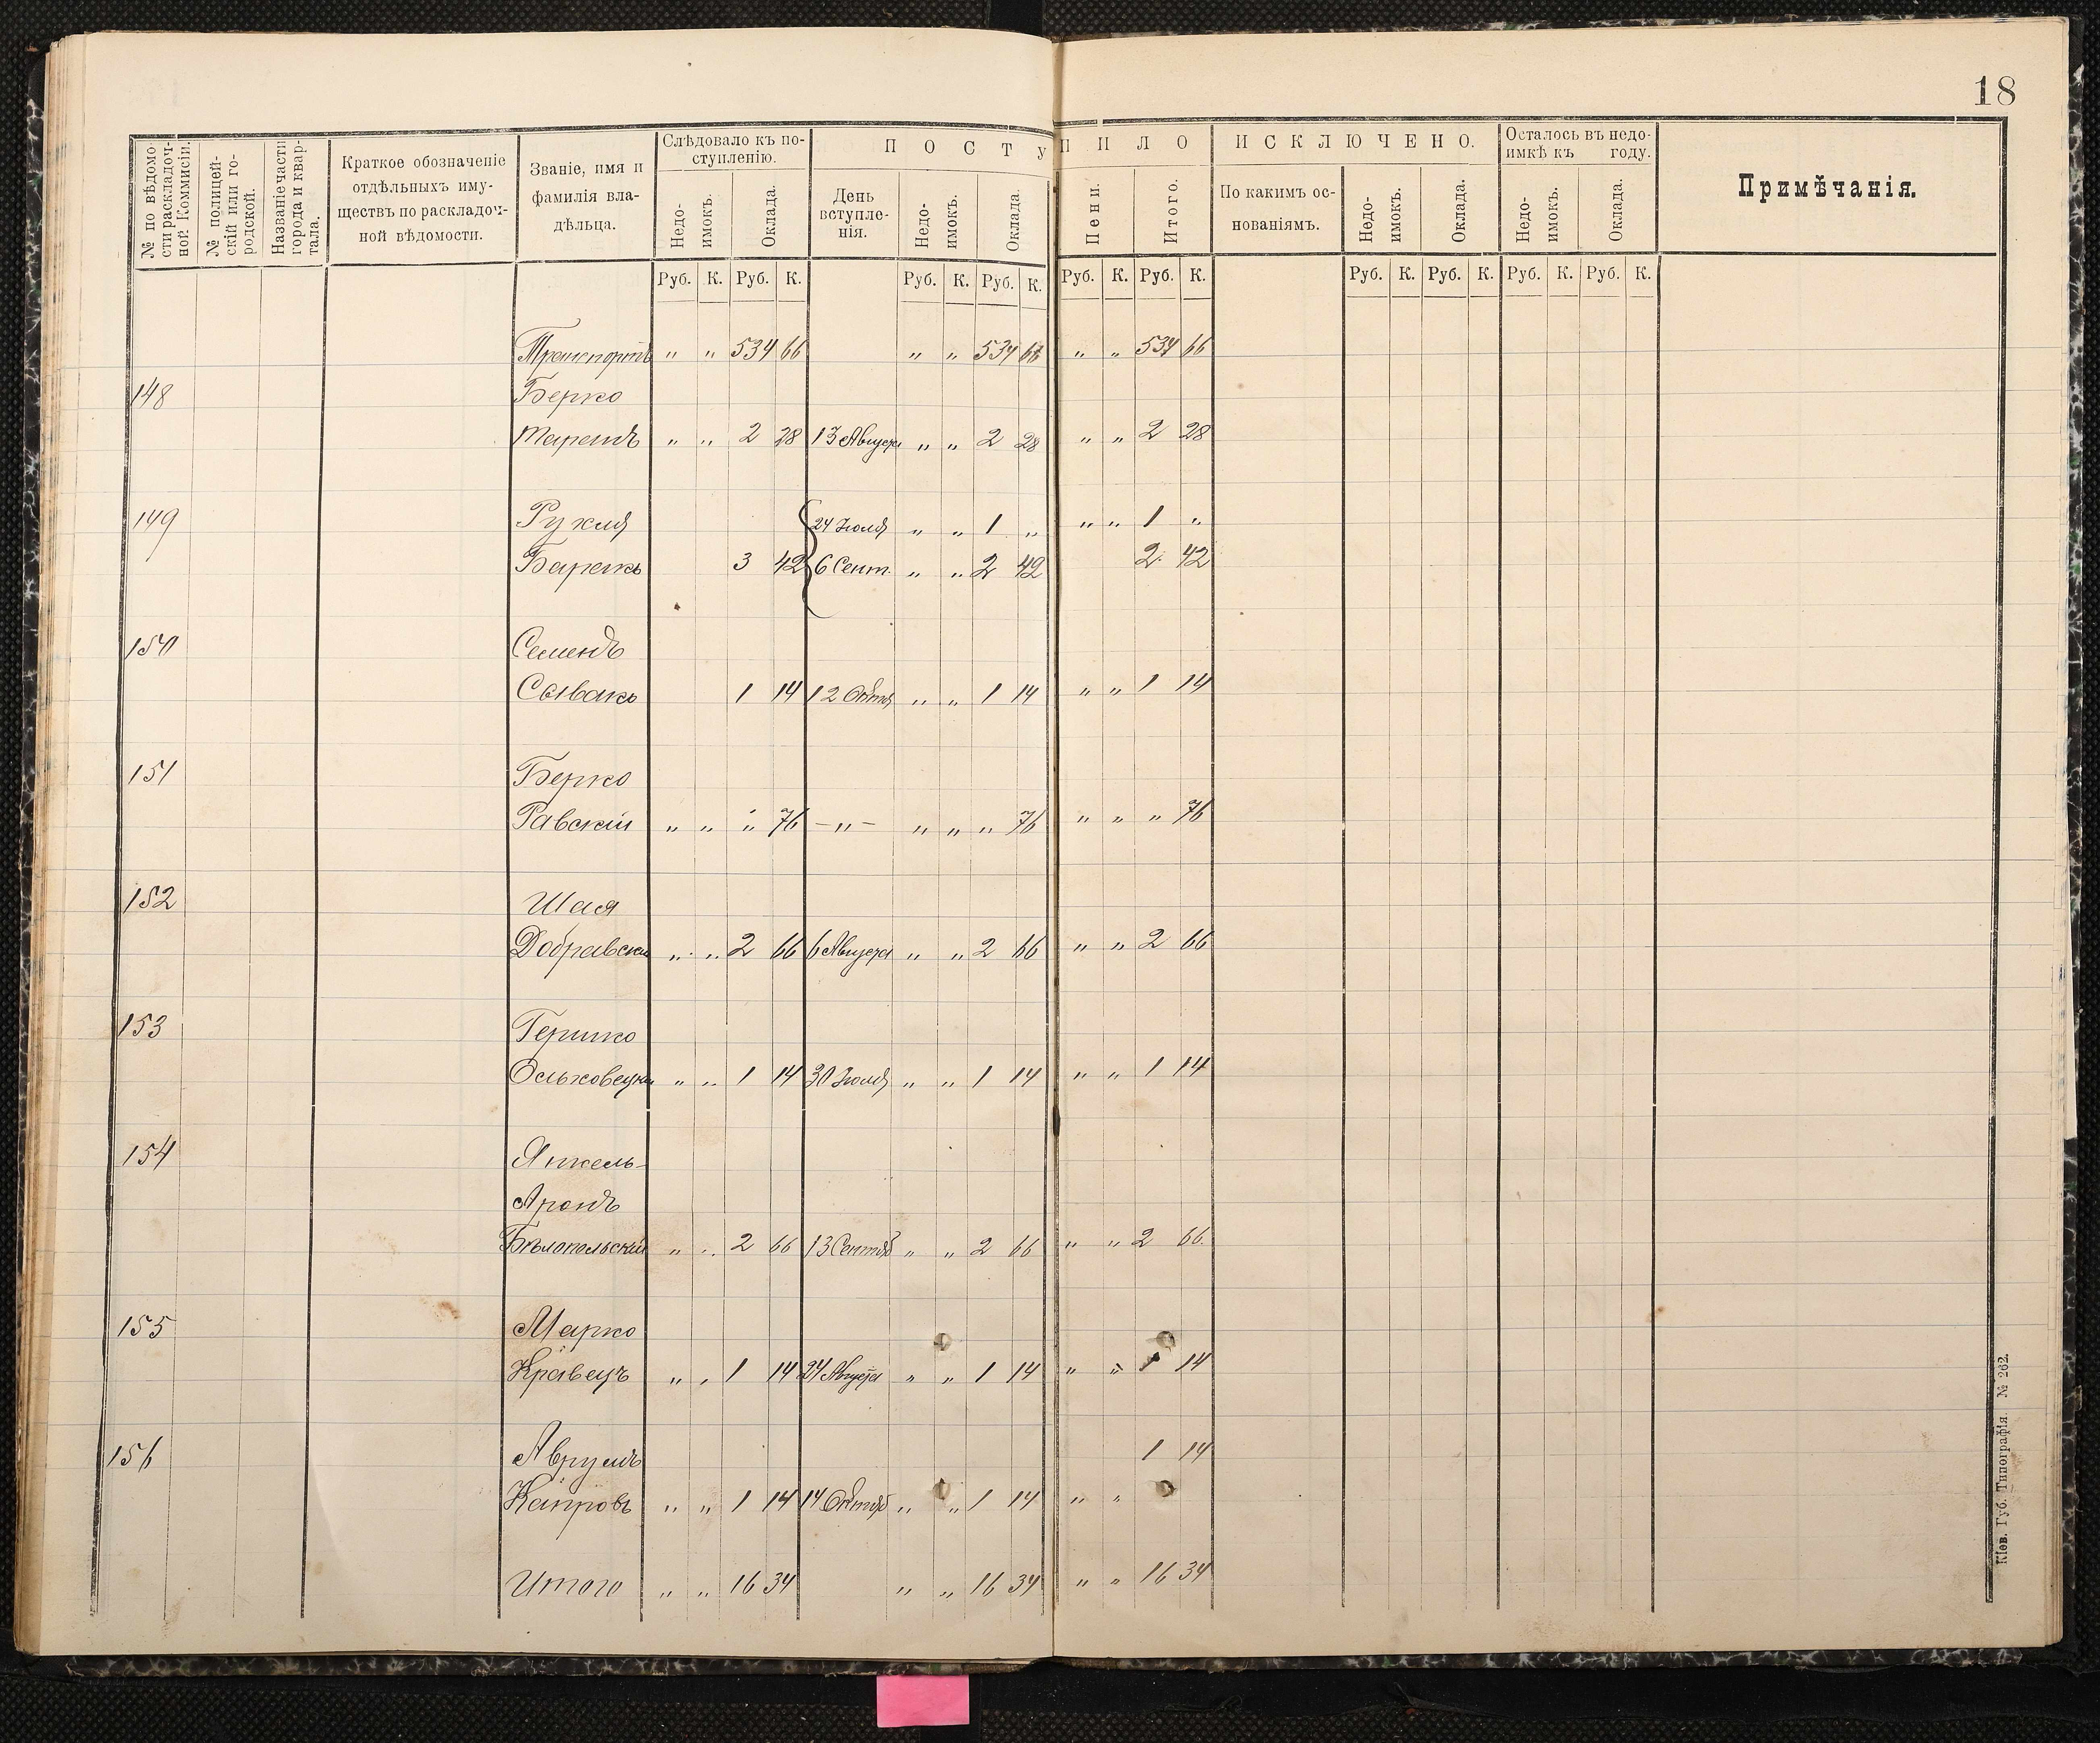 18
№ по вѣдомо-
сти раскладоч-
ной Коммисіи.
№ полицей-
скій или го-
родской.
Названіе части
города и квар-
тала.
Краткое обозначеніе
отдѣльныхъ иму-
ществъ по раскладоч-
ной вѣдомости.
Званіе, имя и
фамилія вла-
дѣльца.
Слѣдовало къ по-
ступленію.
Недо-
имокъ.
Оклада.
ПОСТУПИЛО
День
вступле-
нія.
Недо-
имокъ.
Оклада.
Пени.
Итого.
ИСКЛЮЧЕНО.
По какимъ ос-
нованіямъ.
Недо-
имокъ.
Оклада.
Осталось въ недо-
имкѣ къ году.
Недо-
имокъ.
Оклада.
Примѣчанія.
Руб. К. Руб. К. Руб. К. Руб. К. Руб. К. Руб. К. Руб. К. Руб. К. Руб. К. Руб. К.
Транспортъ " " 534 66 " " 534 66 " " 534 66
148 Берко
" " 2 28 13 Августа " " 2 28 " " 2 28
149 Рухля 24 Июля " " 1 " " " 1 "
3 42 6 Сент. " " 2 42 2 42
150 Семенъ
Сывакъ 1 14 12 Октя " " 1 14 " " 1 14
151 Берко
Равскій " " " 76 — " — " " " 76 " " " 76
152 Шая
" " 2 66 6 Августа " " 2 66 " " 2 66
153 Гершко
Ольховецкій " " 1 14 30 Июля " " 1 14 " " 1 14
154 Янкель-
Аронъ
Бѣлопольскій " " 2 66 13 Сентяб " " 2 66 " " 2 66
155 Марко
Кравецъ " " 1 14 24 Августа " " 1 14 " " 1 14
156 Аврумъ 1 14
Каировъ " " 1 14 14 Октяб " " 1 14 " "
Итого " " 16 34 " " 16 34 " " 16 34
Кіев. Губ. Типографія. № 262.